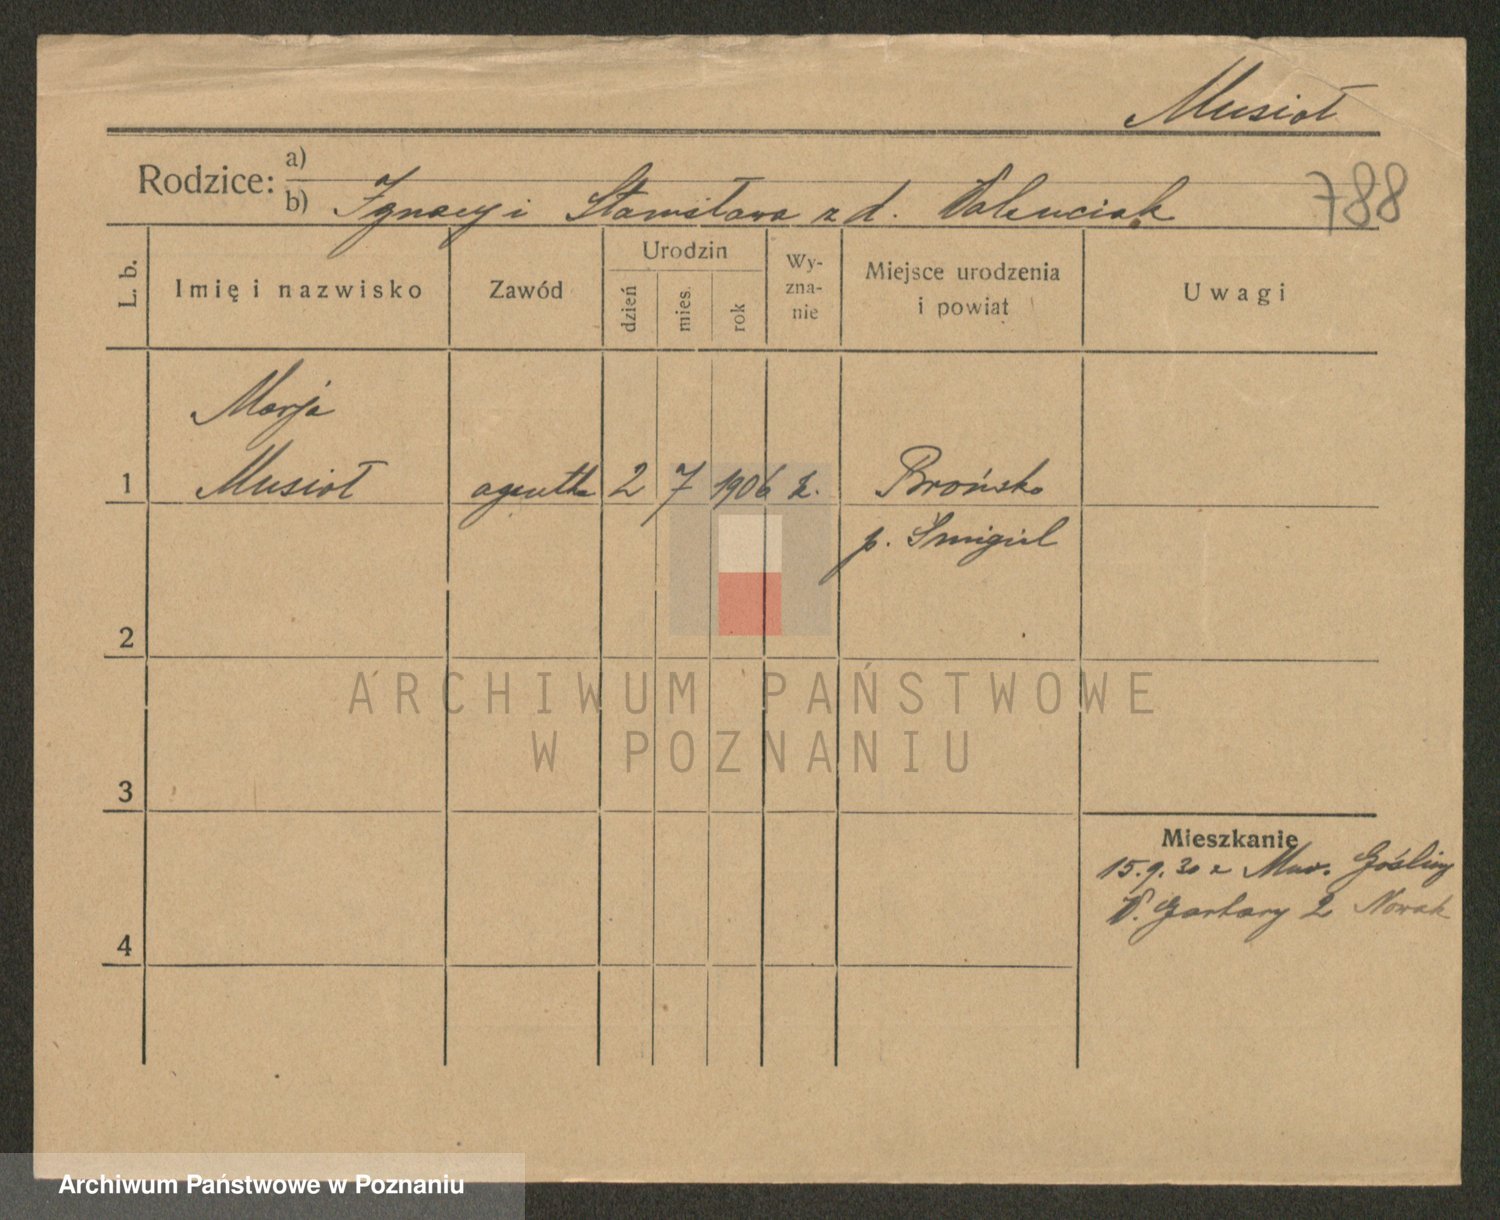 Musioł
Rodzice: a)
b) Ignacy i Stanisława z d. Walenciak
788
L. b.
Imię i nazwisko
Zawód
Urodzin
dzień
mies.
rok
Wy-
zna-
nie
Miejsce urodzenia
i powiat
Uwagi
Marja
1 Musioł agentka 2 7 1906 k. Brońsko
p. Śmigiel
2
ARCHIWUM PAŃSTWOWE
W POZNANIU
3
Mieszkanie
15.9.30 z Mur. Gośliny
W. Garbary 2 Nowak
4
Archiwum Państwowe w Poznaniu